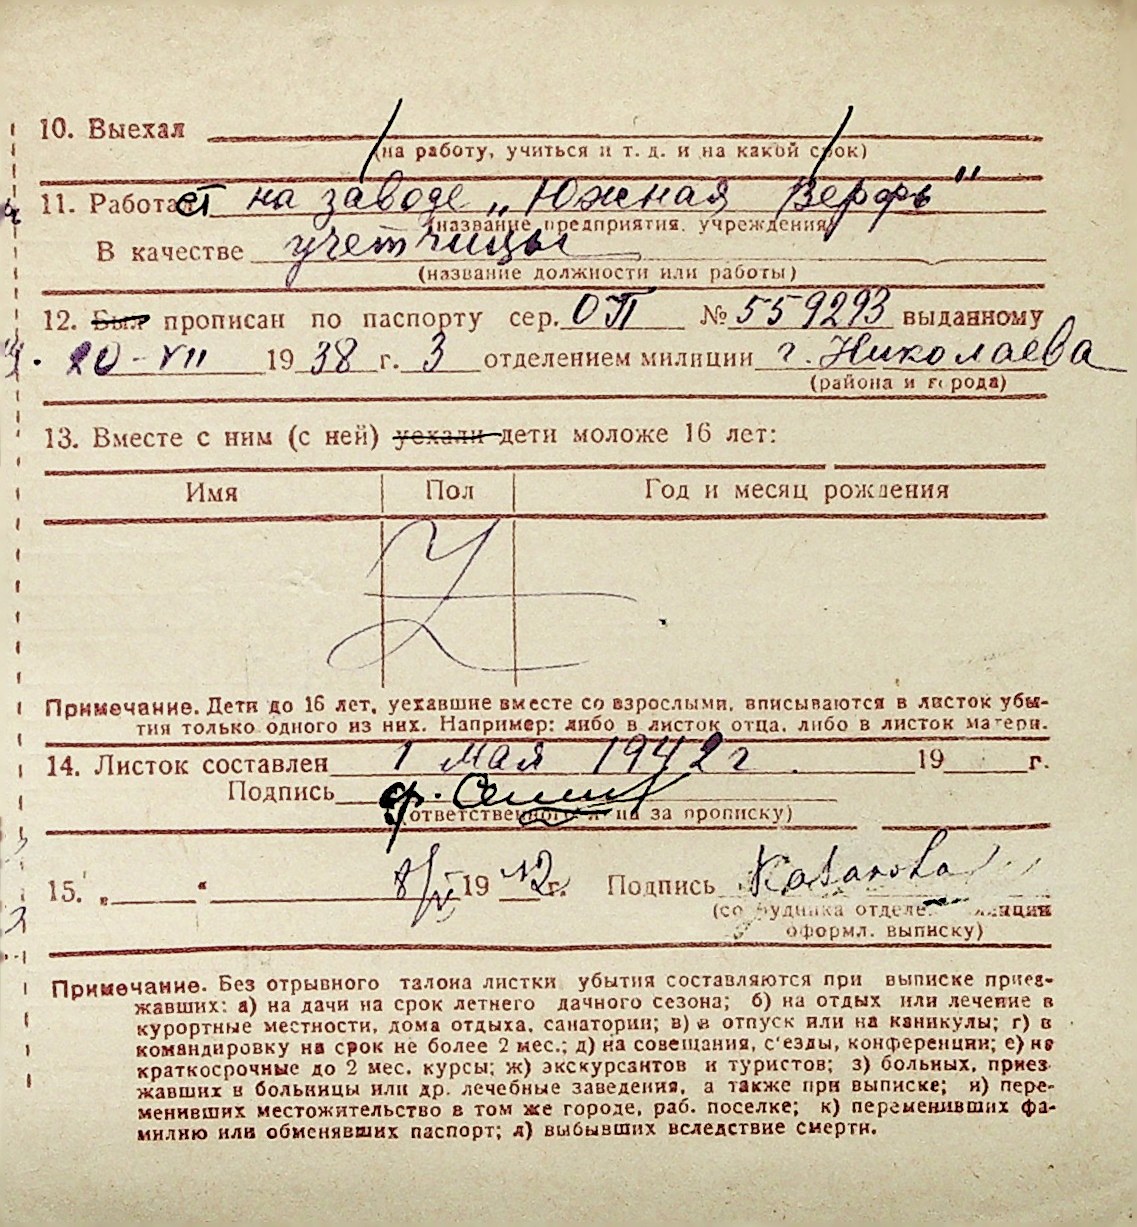 10. Выехал
(на работу, учиться и т. д. и на какой срок)
11. Работает на заводе „Южная Верфь"
(название предприятия, учреждения)
В качестве учетчицы
(название должности или работы)
12. Был прописан по паспорту сер. ОП № 559293 выданному
20-VII 1938 г. 3 отделением милиции г. Николаева
(района и города)
13. Вместе с ним (с ней) уехали дети моложе 16 лет:
Имя Пол Год и месяц рождения
Z
Примечание. Дети до 16 лет, уехавшие вместе со взрослыми, вписываются в листок убы-
тия только одного из них. Например: либо в листок отца, либо в листок матери.
14. Листок составлен 1 мая 1942 г 19 г.
Подпись
(ответственного лица за прописку)
15. „ " 8/V 1942 г. Подпись
(сотрудника отделе. милиции
оформл. выписку)
Примечание. Без отрывного талона листки убытия составляются при выписке приез-
жавших: а) на дачи на срок летнего дачного сезона; б) на отдых или лечение в
курортные местности, дома отдыха, санатории; в) в отпуск или на каникулы; г) в
командировку на срок не более 2 мес.; д) на совещания, с'езды, конференции; е) на
краткосрочные до 2 мес. курсы; ж) экскурсантов и туристов; з) больных, приез-
жавших в больницы или др. лечебные заведения, а также при выписке; и) пере-
менивших местожительство в том же городе, раб. поселке; к) переменивших фа-
милию или обменявших паспорт; л) выбывших вследствие смерти.